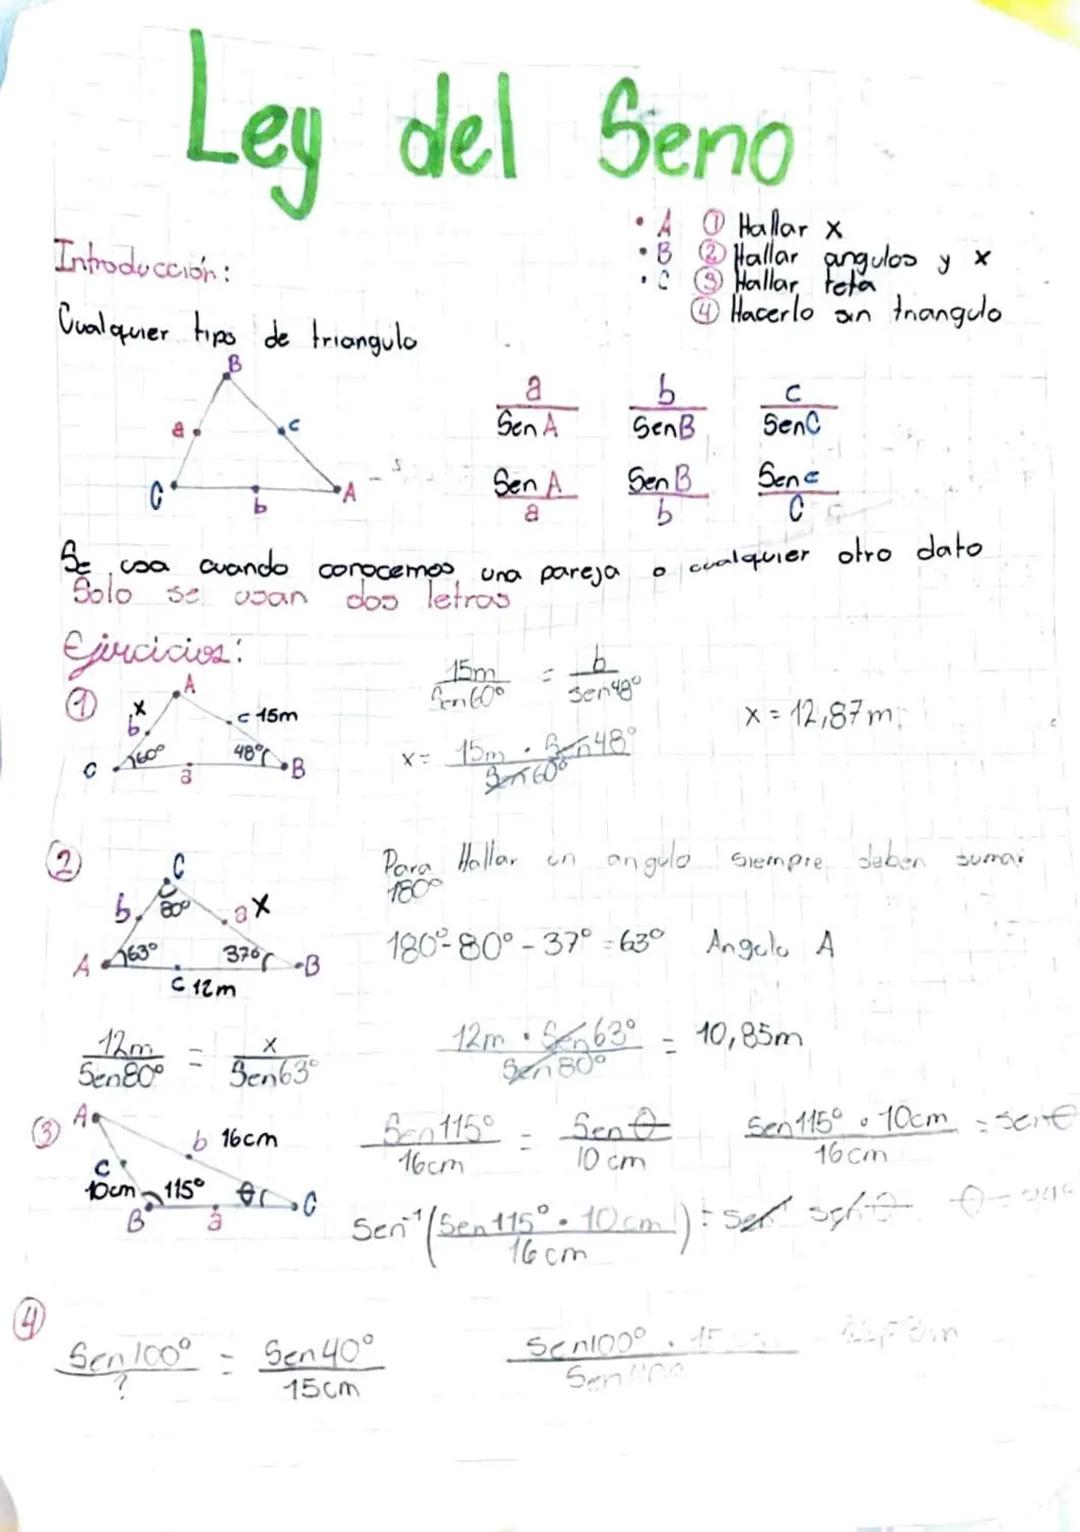 Ley del Seno
• A ① Hallar x
• B ② Hallar angulos y x
• C ③ Hallar teta
④ Hacerlo sin triangulo
Introducción:
Cualquier tipo de triangulo
B
a c
C b A
a/Sen A b/Sen B c/Sen C
Sen A/a Sen B/b Sen c/C
Se usa cuando conocemos una pareja o cualquier otro dato
Solo se usan dos letras
Ejercicios:
① A
x b c 15m
C 60° a 48° B
15m/Sen 60° = b/Sen 48°
x = 15m · Sen 48°/Sen 60°
x = 12,87m
② C
b 80° a x
A 63° 37° B
c 12m
Para Hallar un angulo siempre deben sumar
180°
180° - 80° - 37° = 63° Angulo A
12m/Sen 80° = x/Sen 63°
12m · Sen 63°/Sen 80° = 10,85m
③ A
b 16cm
c
10cm 115° θ C
B a
Sen 115°/16cm = Sen θ/10 cm
Sen 115° · 10cm/16cm = sen θ
Sen⁻¹ (Sen 115° · 10cm/16cm) =
④ Sen 100°/? = Sen 40°/15cm
Sen 100° ·